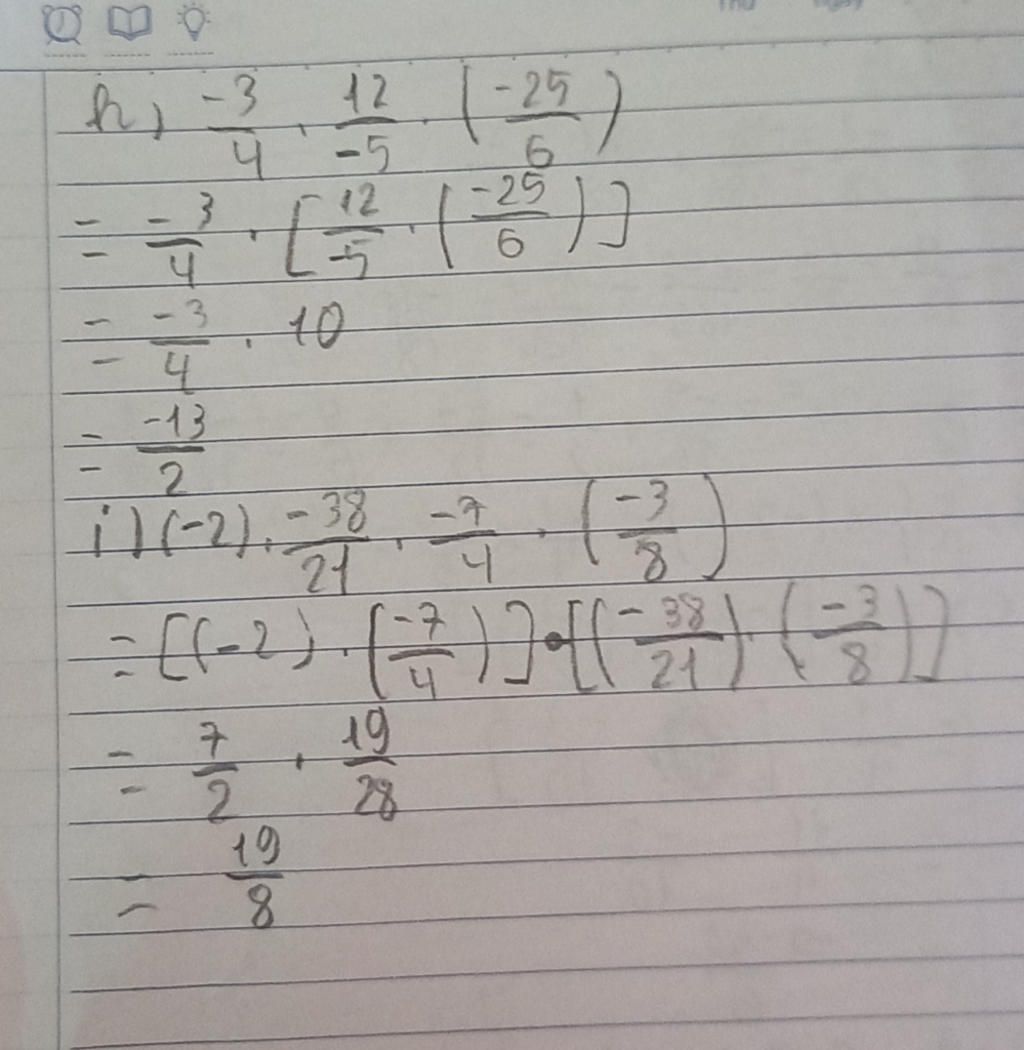 h, -3/4 . 12/-5 . (-25/6)
= -3/4 . [12/-5 . (-25/6)]
= -3/4 . 10
= -13/2
i) (-2) . -38/21 . -7/4 . (-3/8)
= [(-2) . (-7/4)] . [(-38/21) . (-3/8)]
= 7/2 . 19/28
= 19/8